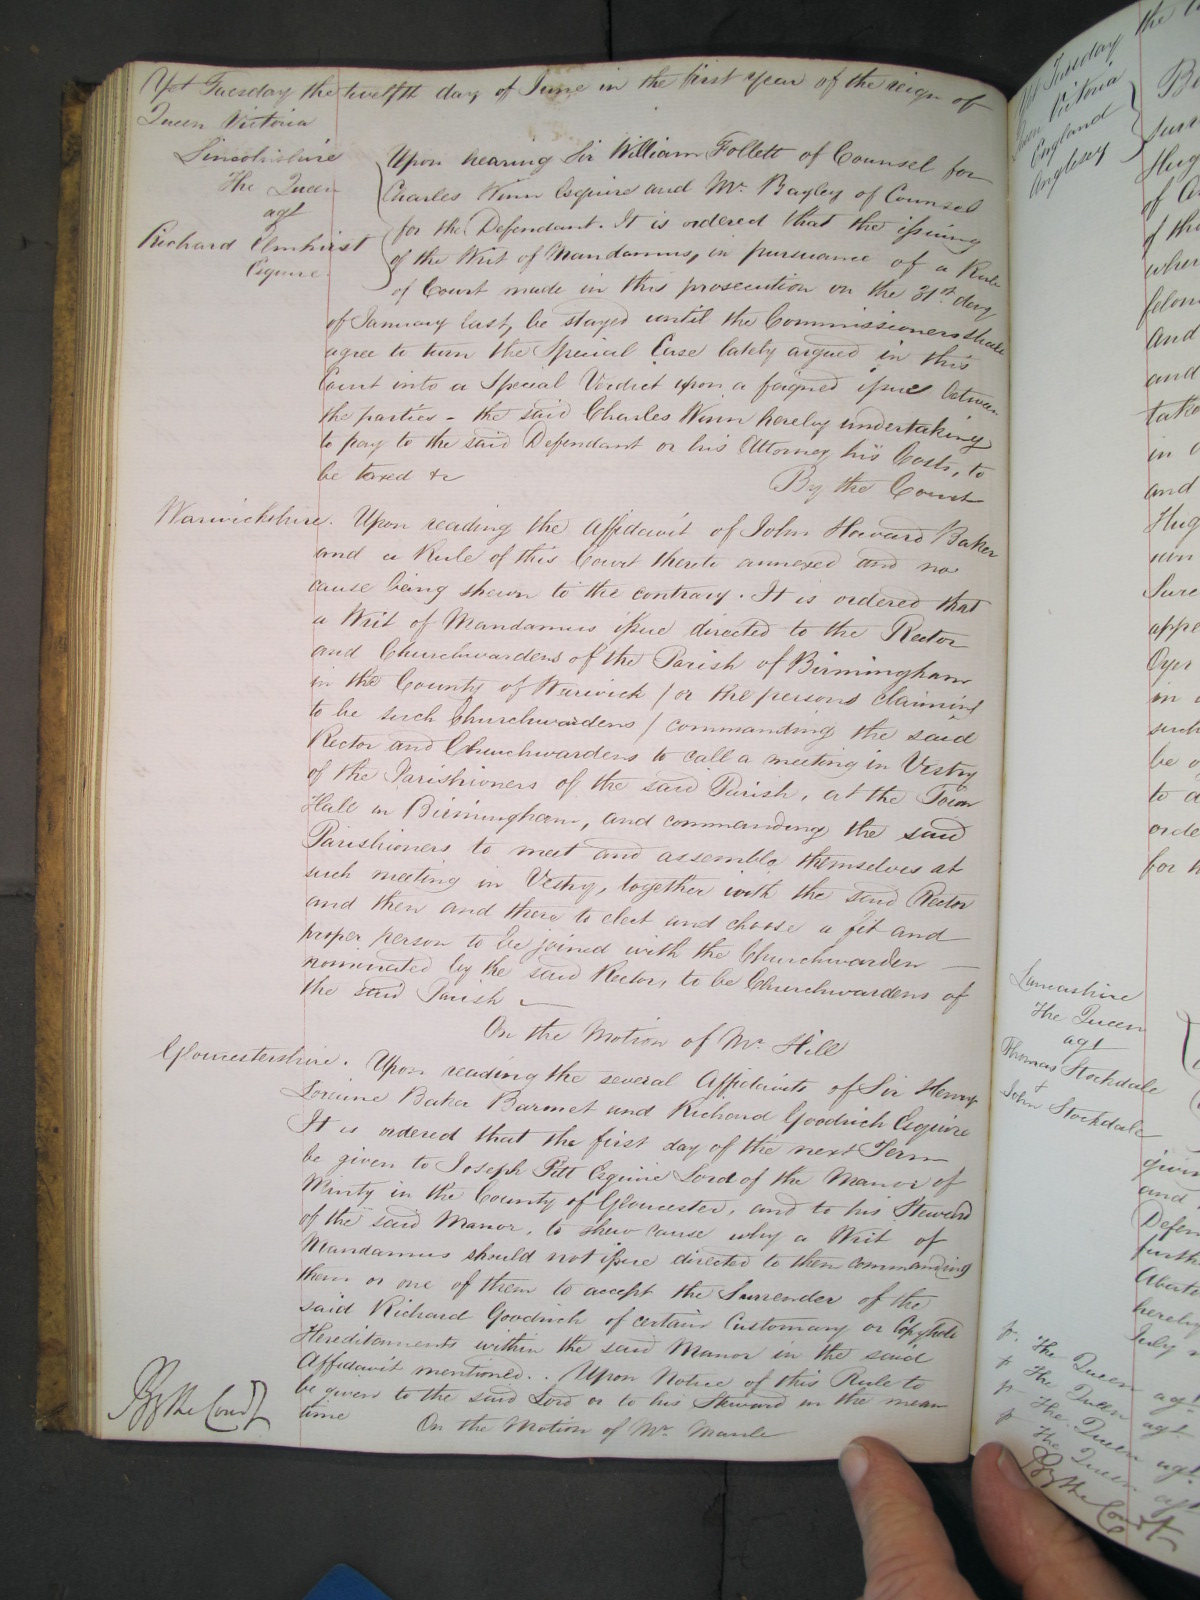 Yet Tuesday the twelfth day of June in the first year of the reign of
Queen Victoria
Lincolnshire
The Queen
agt
Richard Elmhirst
Esquire
Upon hearing Sir William Follett of Counsel for
Charles Winn Esquire and Mr. Bayley of Counsel
for the Defendant. It is ordered that the issuing
of the Writ of Mandamus, in pursuance of a Rule
of Court made in this prosecution on the 31st day
of January last, be stayed until the Commissioners shall
agree to turn the Special Case lately argued in this
Court into a Special Verdict upon a feigned issue between
the parties - the said Charles Winn hereby undertaking
to pay to the said Defendant or his Attorney his Costs, to
be taxed &c
By the Court
Warwickshire. Upon reading the Affidavit of John Howard Baker
and a Rule of this Court thereto annexed and no
cause being shewn to the contrary. It is ordered that
a Writ of Mandamus issue directed to the Rector
and Churchwardens of the Parish of Birmingham
in the County of Warwick / or the persons claiming
to be such Churchwardens / commanding the said
Rector and Churchwardens to call a meeting in Vestry
of the Parishioners of the said Parish, at the Town
Hall in Birmingham, and commanding the said
Parishioners to meet and assemble themselves at
such meeting in Vestry, together with the said Rector
and then and there to elect and choose a fit and
proper person to be joined with the Churchwarden
nominated by the said Rector, to be Churchwardens of
the said Parish
On the Motion of Mr. Hill
Gloucestershire. Upon reading the several Affidavits of Sir Henry
Loraine Baker Baronet and Richard Goodrich Esquire
It is ordered that the first day of the next Term
be given to Joseph Pitt Esquire Lord of the Manor of
Minty in the County of Gloucester, and to his Steward
of the said Manor, to shew cause why a Writ of
Mandamus should not issue directed to them commanding
them or one of them to accept the Surrender of the
said Richard Goodrich of certain Customary or Copyhold
Hereditaments within the said Manor in the said
Affidavit mentioned.. Upon Notice of this Rule to
be given to the said Lord or to his Steward in the mean
time
On the Motion of Mr. Maule
By the Court
Yet Tuesday the
Queen Victoria
England
Anglesey
Lancashire
The Queen
agt
Thomas Stockdale
+
John Stockdale
p. The Queen agt
p The Queen agt
p The Queen agt
p The Queen agt
By the Court